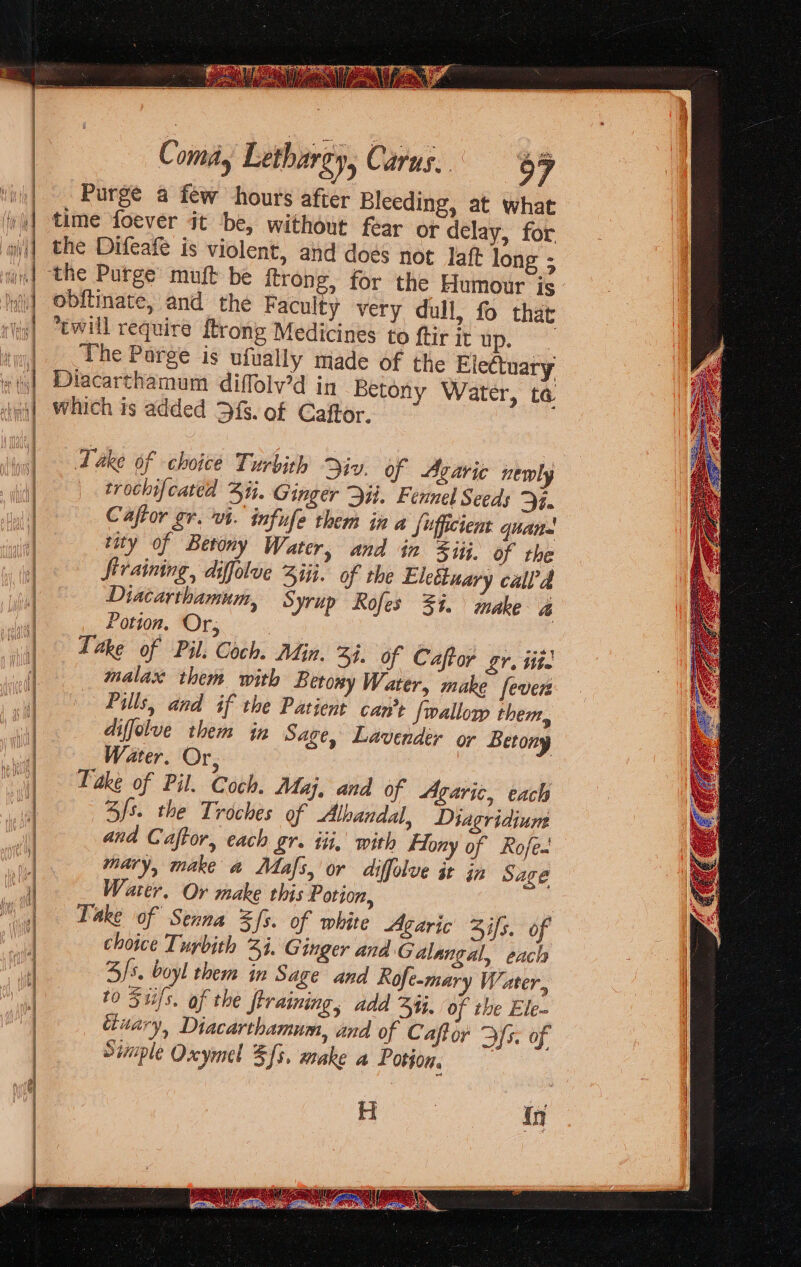 Coma, Lethargy, Carus. 97
Purge a few hours after Bleeding, at what
time ſoever it be, without fear or delay, for
the Diſeaſe is violent, and does not laſt long;
the Purge muſt be ſtrong, for the Humour is
obſtinate, and the Faculty very dull, ſo that
'twill require ſtrong Medicines to ſtir it up.
The Purge is uſually made of the Electuary
Diacarthamum diſſolv'd in Betony Water, to
which is added ℈ſs. of Caſtor.
Take of choice Turbith ℈iv. of Agaric newly
trochiſcated ʒii. Ginger ℈ii. Fennel Seeds ℈i.
Caſtor gr. vi. infuſe them in a ſufficient quan-
tity of Betony Water, and in ℥iii. of the
ſtraining, diſſolve ʒiii. of the Electuary call'd
Diacarthamum, Syrup Roſes ℥i. make a
Potion. Or,
Take of Pil. Coch. Min. ʒi. of Caſtor gr. iii.
malax them with Betony Water, make ſeven
Pills, and if the Patient can't ſwallow them,
diſſolve them in Sage, Lavender or Betony
Water. Or,
Take of Pil. Coch. Maj. and of Agaric, each
ʒſs. the Troches of Alhandal, Diagridium
and Caſtor, each gr. iii. with Hony of Roſe-
mary, make a Maſs, or diſſolve it in Sage
Water. Or make this Potion,
Take of Senna ℥ſs. of white Agaric ʒiſs. of
choice Turbith ʒi. Ginger and Galangal, each
ʒſs. boyl them in Sage and Roſe-mary Water,
to ℥iiſs. of the ſtraining, add ʒii. of the Ele-
ctuary, Diacarthamum, and of Caſtor ℈ſs. of
Simple Oxymel ℥ſs. make a Potion.
H In